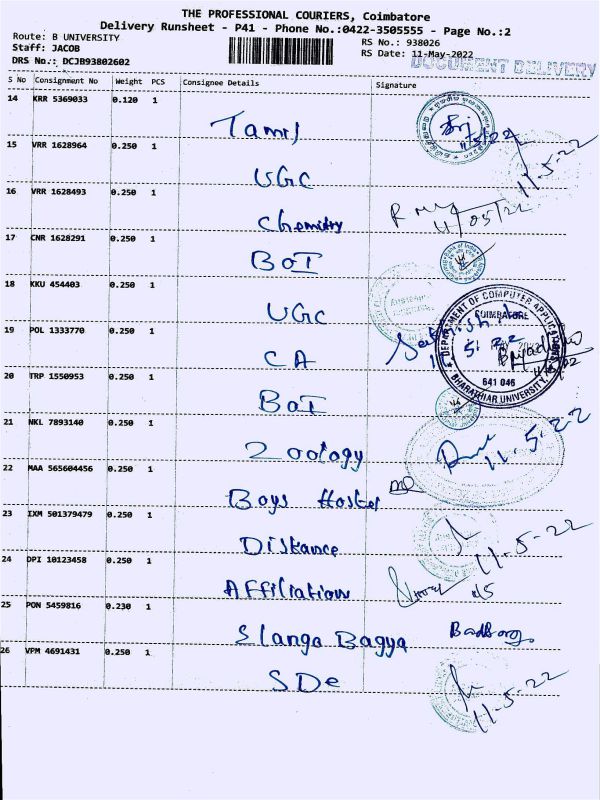 THE PROFESSIONAL COURIERS, Coimbatore
Delivery Runsheet - P41 - Phone No.:0422-3505555 - Page No.:2
Route: B UNIVERSITY
Staff: JACOB
DRS No.: DCJB93802602
RS No.: 938026
RS Date: 11-May-2022
DOCUMENT DELIVERY
S No Consignment No Weight PCS Consignee Details Signature
14 KRR 5369033 0.120 1
Tamil
11/5/22
15 VRR 1628964 0.250 1
UGC
11-5-22
16 VRR 1628493 0.250 1
Chemistry
11/05/22
17 CNR 1628291 0.250 1
BOI
18 KKU 454403 0.250 1
UGC
19 POL 1333770 0.250 1
CA
DEPARTMENT OF COMPUTER APPLICATIONS
COIMBATORE
641 046
BHARATHIAR UNIVERSITY
20 TRP 1550953 0.250 1
BOI
21 NKL 7893140 0.250 1
Zoology
11.5.22
22 MAA 565604456 0.250 1
Boys Hostel
23 IXM 501379479 0.250 1
Distance
11-5-22
24 DPI 10123458 0.250 1
Affiliation
25 PON 5459816 0.230 1
Slango Bagya
26 VPM 4691431 0.250 1
SDe
11-5-22